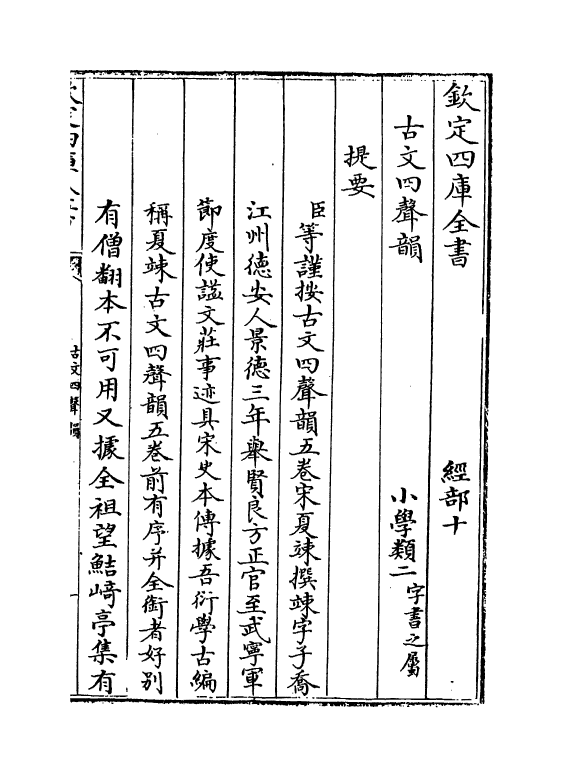 欽定四庫全書　經部十
古文四聲韻　小學類二字書之屬
提要
臣等謹按古文四聲韻五卷宋夏竦撰竦字子喬
江州德安人景德三年舉賢良方正官至武寧軍
節度使諡文莊事迹具宋史本傳據吾衍學古編
稱夏竦古文四聲韻五卷前有序并全銜者好別
有僧翻本不可用又據全祖望鮚崎亭集有
古文四聲韻